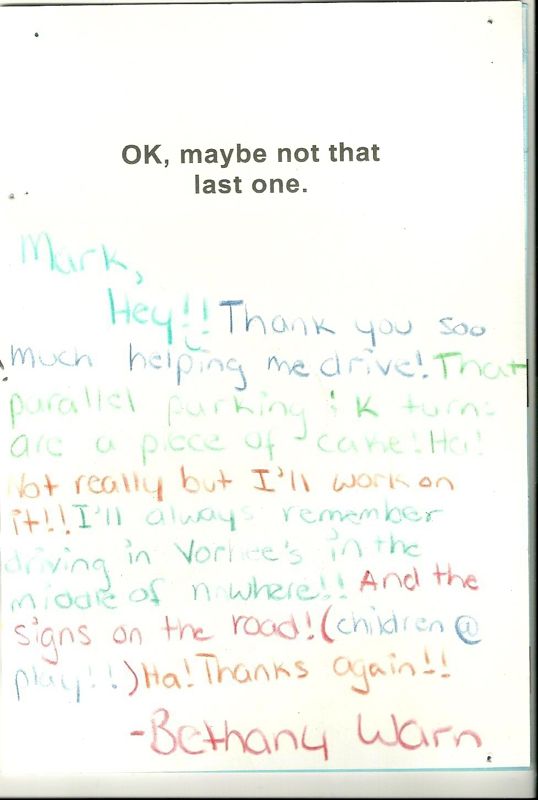 OK, maybe not that
last one.
Mark,
Hey!! Thank you soo
much helping me drive! That
parallel parking & K turns
are a piece of cake! Ha!
Not really but I'll work on
it!! I'll always remember
driving in Vorhee's in the
middle of nowhere!! And the
signs on the road! (children @
play!!) Ha! Thanks again!!
-Bethany Warn